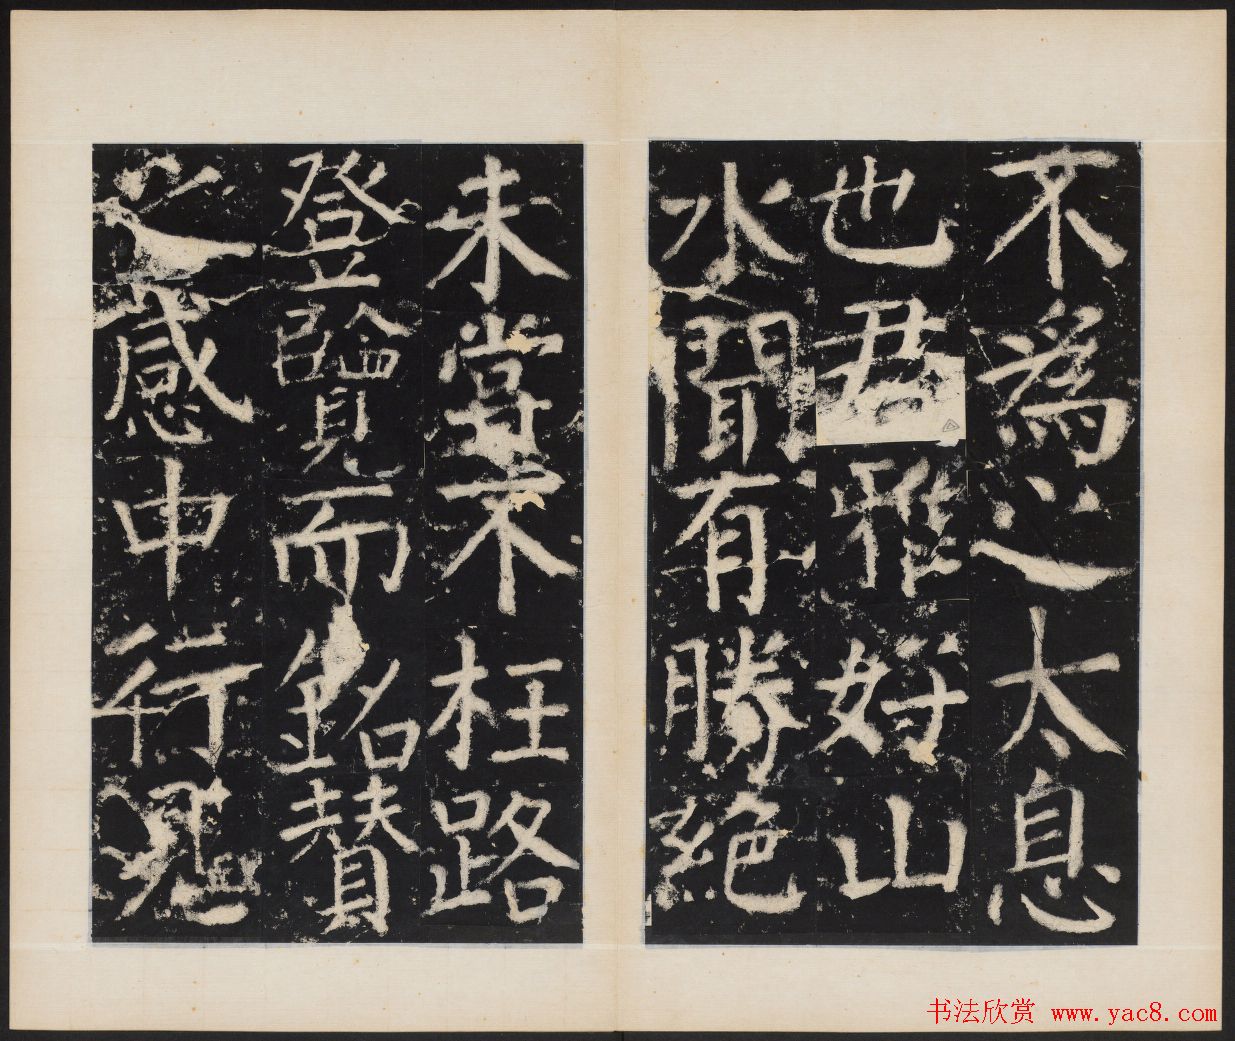 不爲之太息
也君雅好山
水聞有勝絕
未嘗不枉路
登臨覽而銘贊
之感中行
书法欣赏 www.yac8.com